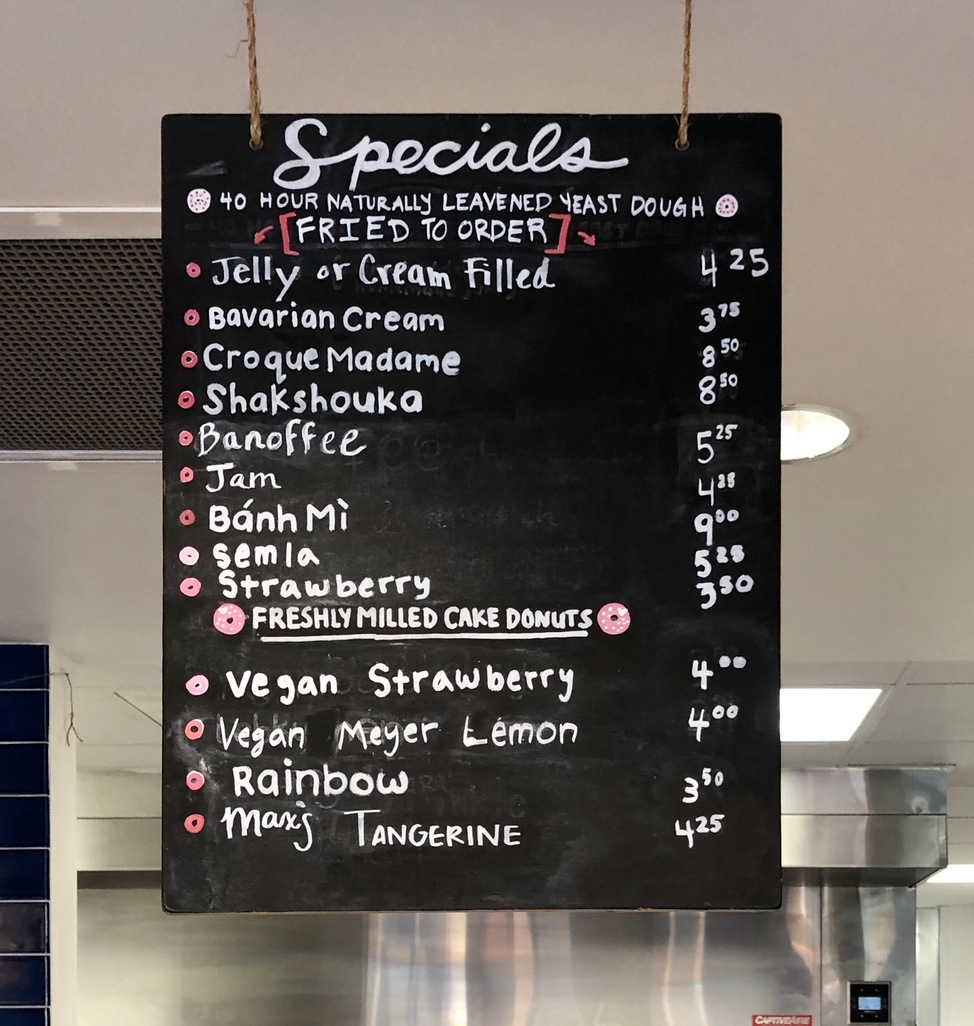 Specials
40 HOUR NATURALLY LEAVENED YEAST DOUGH
[FRIED TO ORDER]
Jelly or Cream Filled 4 25
Bavarian Cream 3 75
Croque Madame 8 50
Shakshouka 8 50
Banoffee 5 25
Jam 4 25
Bánh Mì 9 00
Semla 5 25
Strawberry 3 50
FRESHLY MILLED CAKE DONUTS
Vegan Strawberry 4 00
Vegan Meyer Lemon 4 00
Rainbow 3 50
Max's TANGERINE 4 25
CAPTIVEAIRE